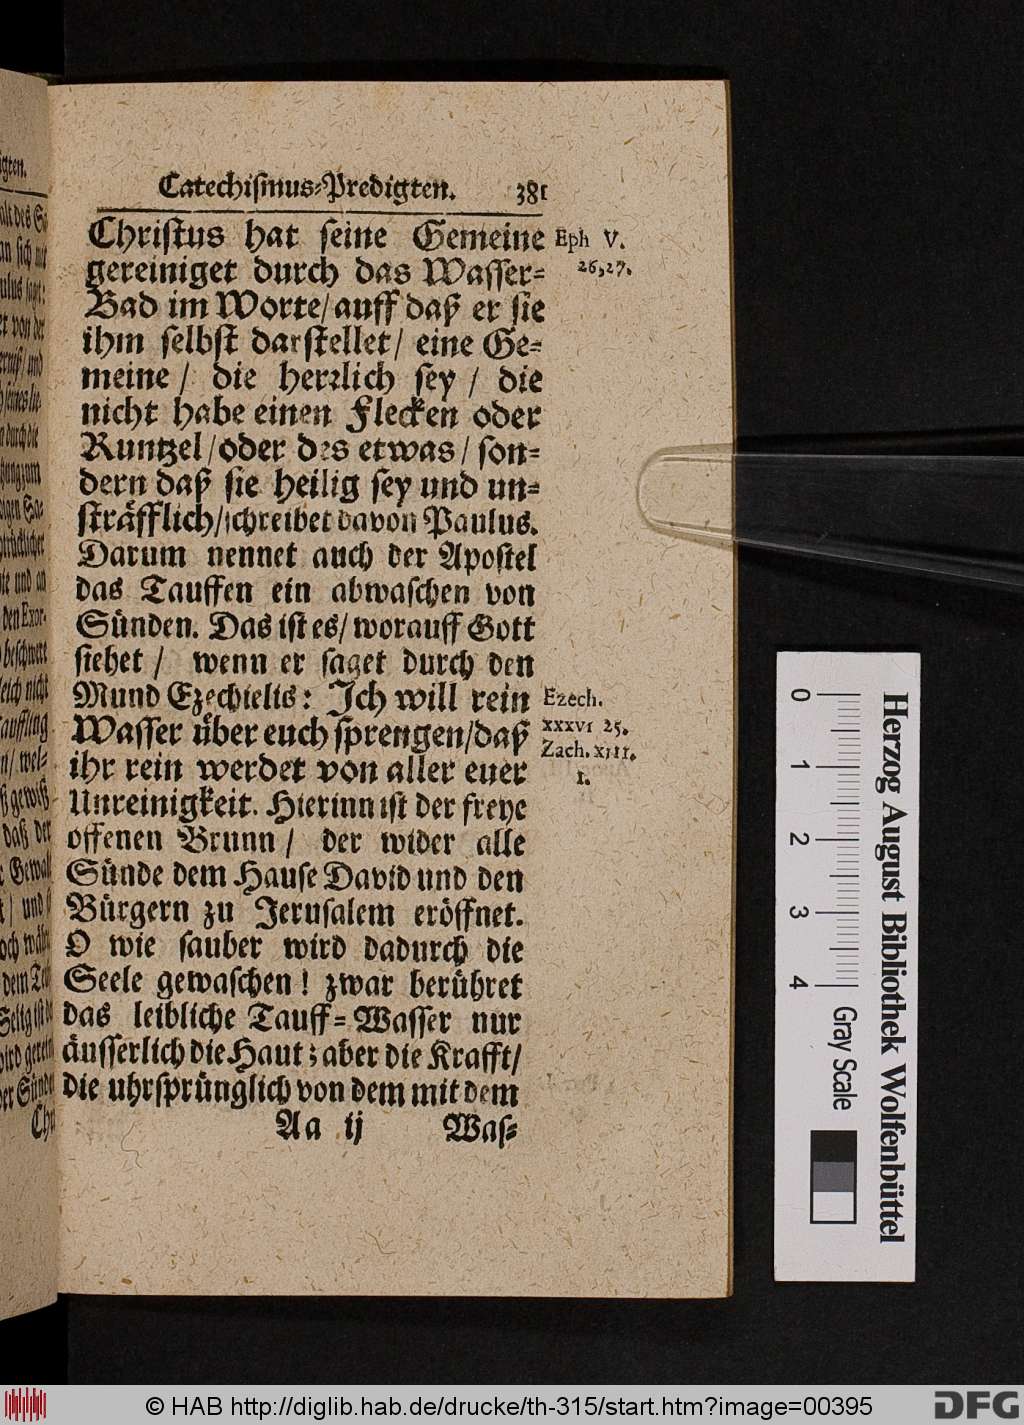 Catechiſmus-Predigten. 381
Chriſtus hat ſeine Gemeine
gereiniget durch das Waſſer-
Bad im Worte/ auff daß er ſie
ihm ſelbſt darſtellet/ eine Ge-
meine / die herꝛlich ſey / die
nicht habe einen Flecken oder
Runtzel/ oder des etwas/ ſon-
dern daß ſie heilig ſey und un-
ſträfflich/ ſchreibet davon Paulus.
Darum nennet auch der Apoſtel
das Tauffen ein abwaſchen von
Sünden. Das iſt es/ worauff Gott
ſiehet / wenn er ſaget durch den
Mund Ezechielis: Ich will rein
Waſſer über euch ſprengen/ daß
ihr rein werdet von aller euer
Unreinigkeit. Hierinn iſt der freye
offenen Brunn / der wider alle
Sünde dem Hauſe David und den
Bürgern zu Jeruſalem eröffnet.
O wie ſauber wird dadurch die
Seele gewaſchen! zwar berühret
das leibliche Tauff-Waſſer nur
äuſſerlich die Haut; aber die Krafft/
die uhrſprünglich von dem mit dem
Aa ij Waſ-
Eph V.
26,27.
Ezech.
XXXVI 25.
Zach. XIII.
1.
Herzog August Bibliothek Wolfenbüttel
0 1 2 3 4
Gray Scale
© HAB http://diglib.hab.de/drucke/th-315/start.htm?image=00395
DFG